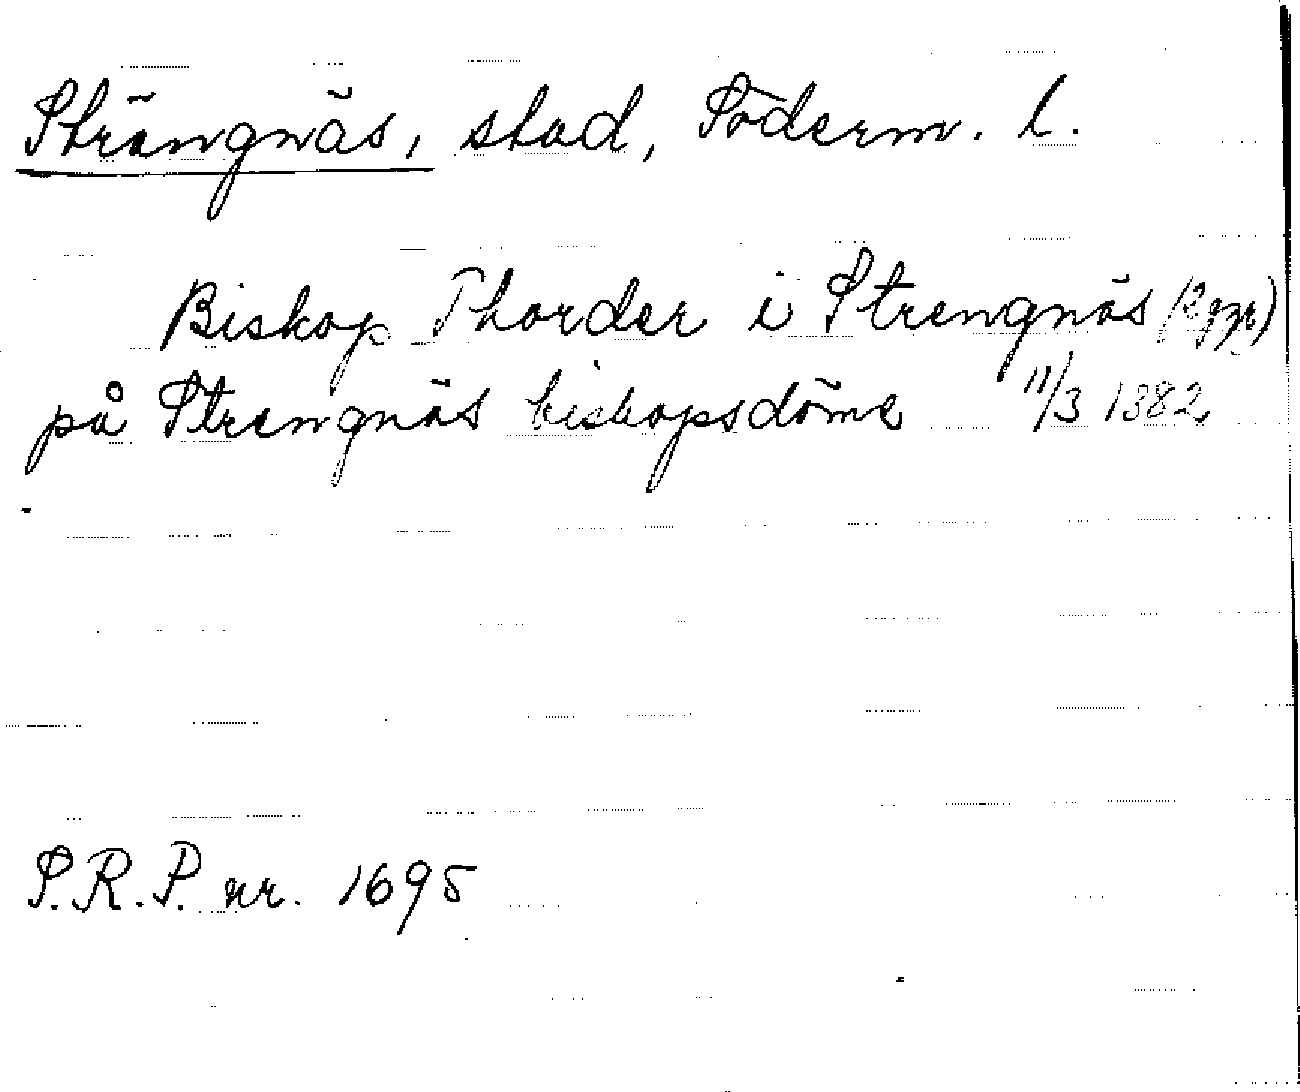 Strängnäs, stad, Söderm. l.
Biskop Thorder i Strengnäs (2 ggr)
på Strengnäs biskopsdöme 11/3 1382
S.R.P. nr. 1695